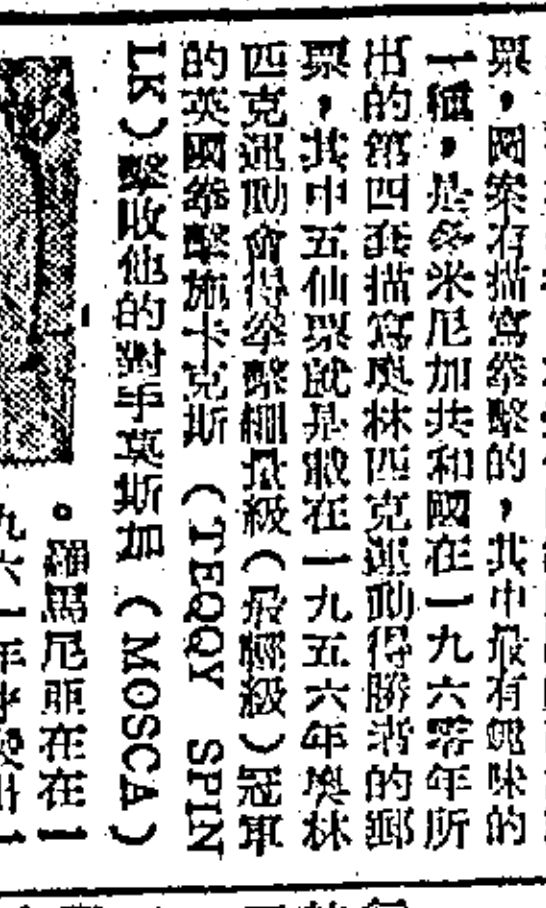 票，圖案有描寫拳擊的，其中最有趣味的
一種，是多米尼加共和國在一九六零年所
出的第四套描寫奧林匹克運動得勝者的郵
票，其中五仙票就是
在一九五六年奧林
匹克運動會得拳擊
級（最輕級）冠軍
的英國拳擊施卡克斯（TEQQY SPIN
LK）擊敗他的對手莫斯加（MOSCA）
。羅馬尼亞在在一
九六一年